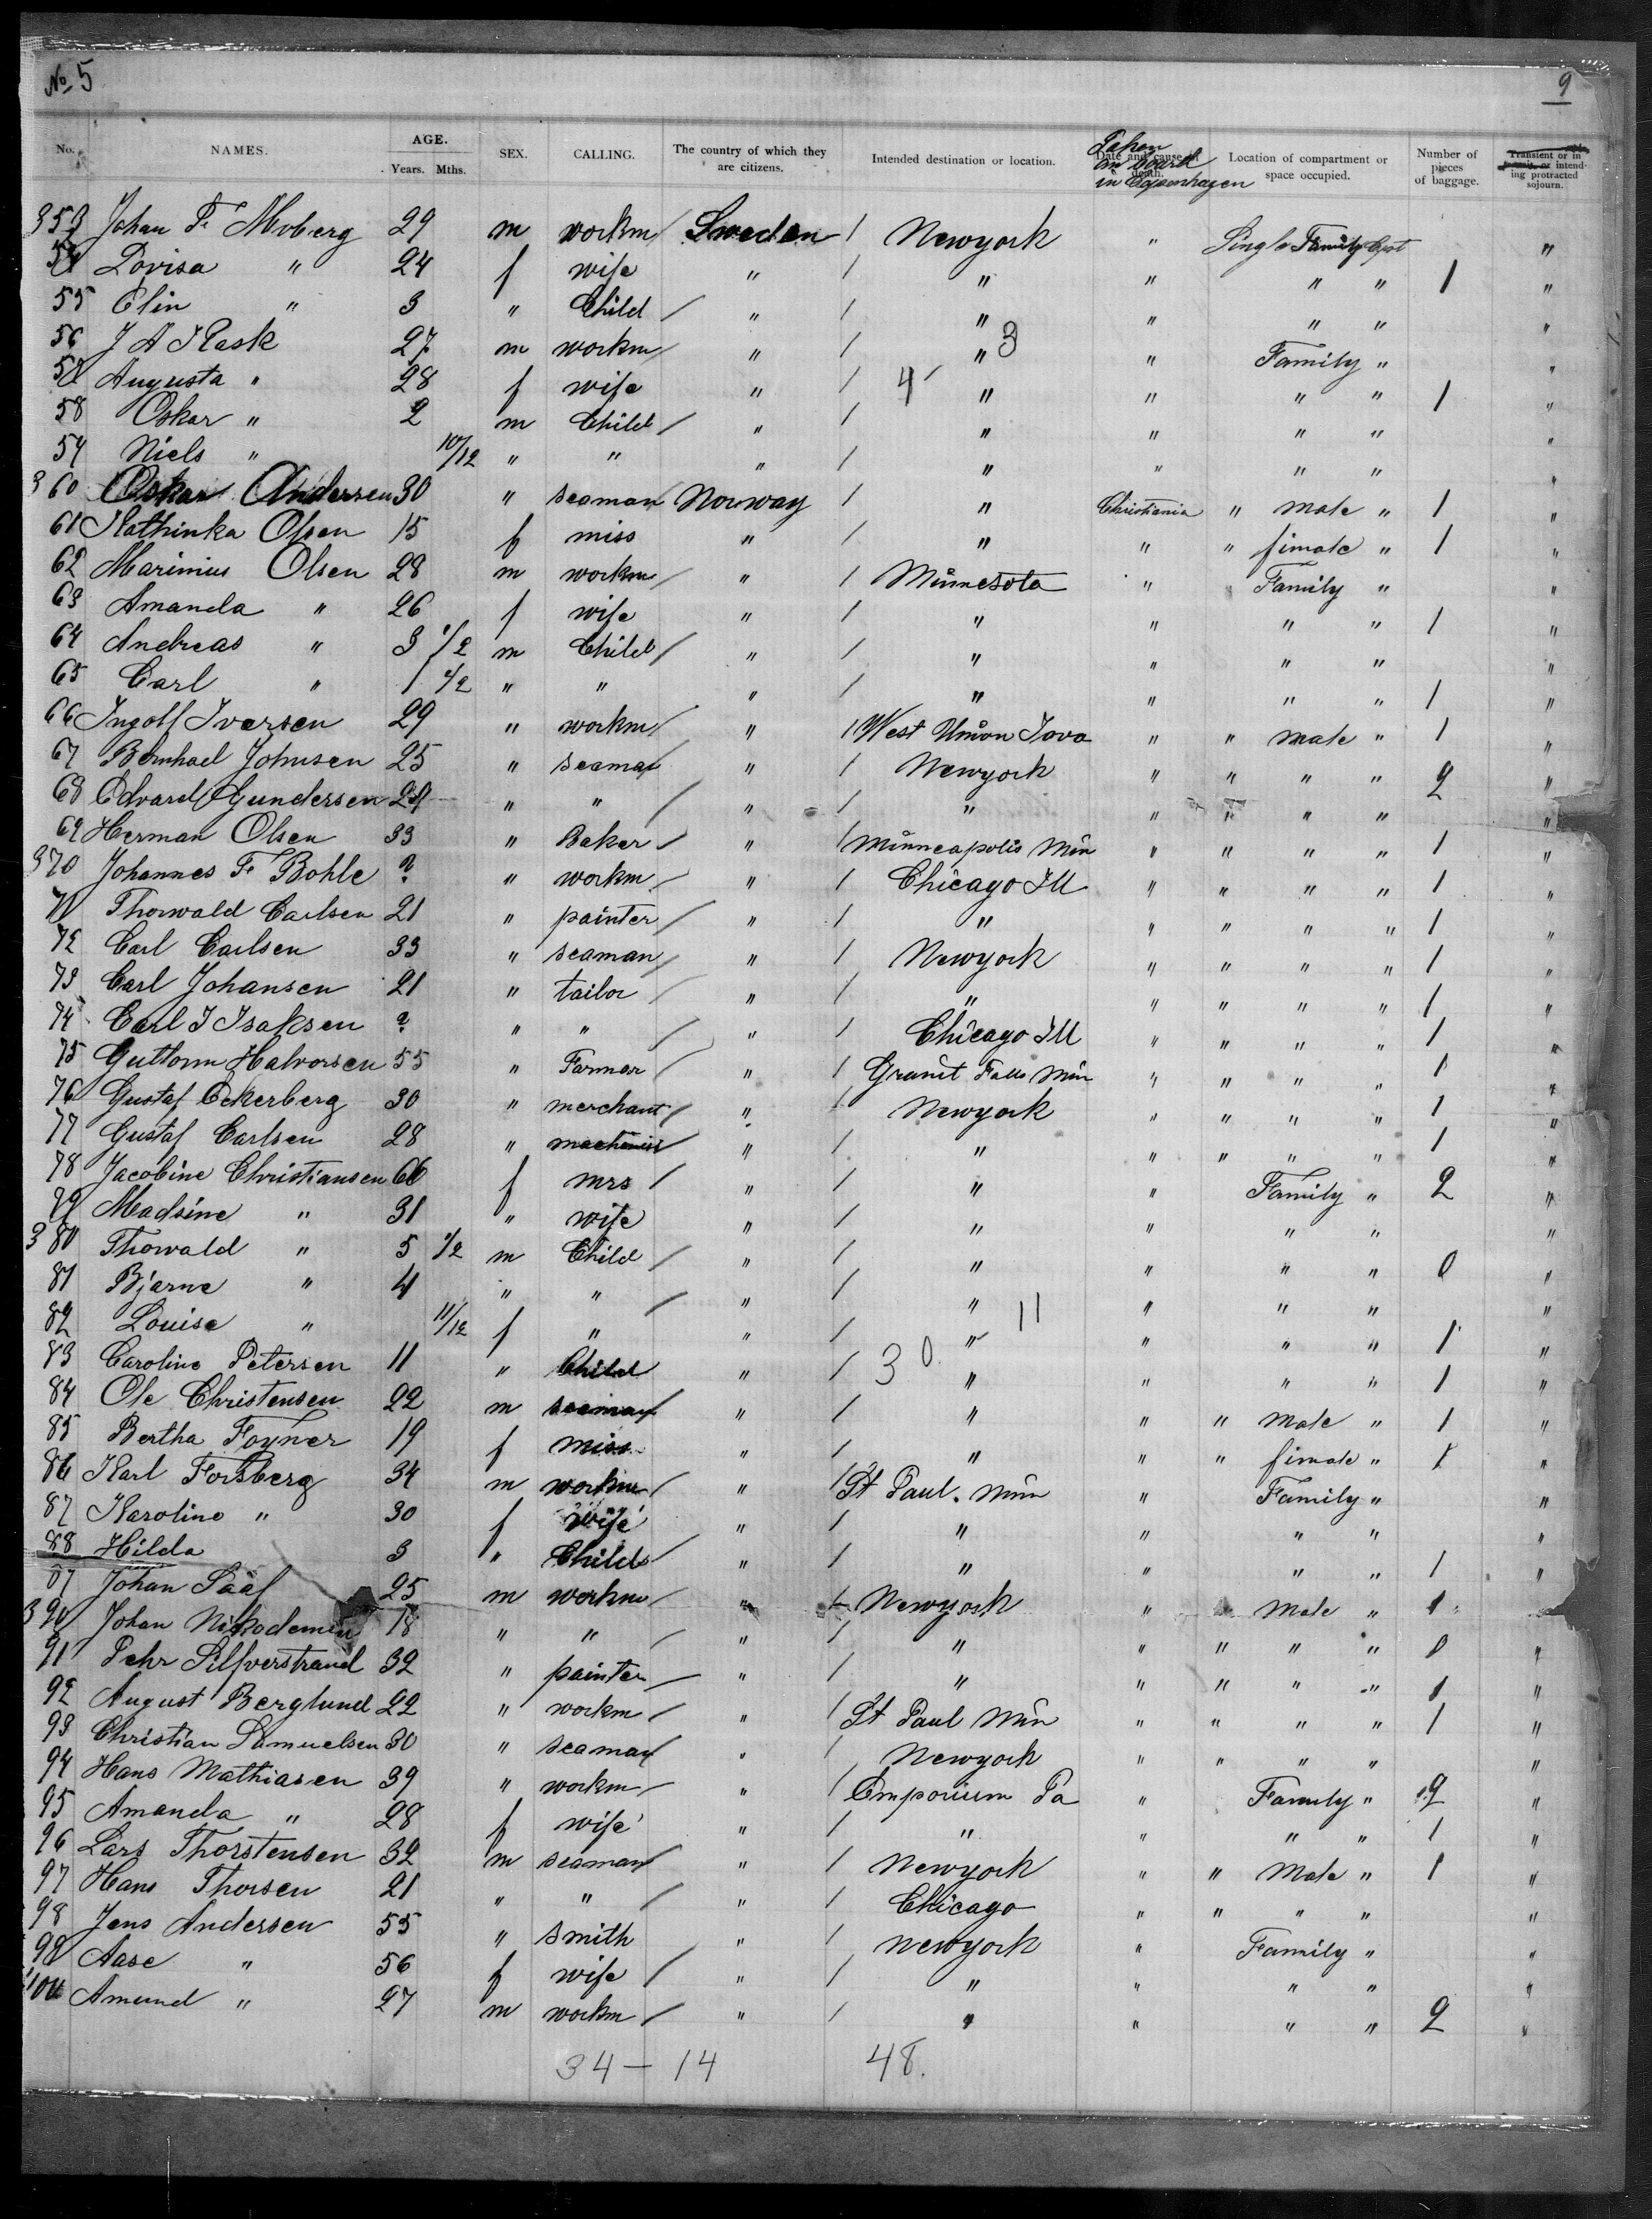 No 5
9
No. NAMES. AGE. Years. Mths. SEX. CALLING. The country of which they are citizens. Intended destination or location. Date and cause of death. Taken on board in Copenhagen Location of compartment or space occupied. Number of pieces of baggage. Transient or in transit, or intending protracted sojourn.
353 Johan F. Moberg 29 m workm / Sweden / Newyork " Single Family Cpt "
54 Lovisa " 24 f wife " / " " " " 1 "
55 Elin " 3 " Child / " / " " " " "
56 J A Rask 27 m workm / " / " 3 " Family " "
57 Augusta " 28 f wife " / 4 " " " " 1 "
58 Oskar " 2 m Child / " / " " " " "
59 Niels " 10/12 " " " / " " " " "
360 Oskar Andersen 30 " seaman Norway / " Christiania " male " 1 "
61 Kathinka Olsen 15 f miss " / " " " fimale " 1 "
62 Marinius Olsen 28 m workm / " / Minnesota " Family " "
63 Amanda " 26 f wife " / " " " " 1 "
64 Andreas " 3 1/2 m Child / " / " " " " "
65 Carl " 1 1/2 " " " / " " " " 1 "
66 Ingolf Iversen 29 " workm / " / West Union Iova " " male " 1 "
67 Bernhael Johnsen 25 " seaman " / Newyork " " " " 2 "
68 Edvard Gundersen 24 " " / " / " " " " " "
69 Herman Olsen 33 " Baker / " / Minneapolis Min " " " " 1 "
370 Johannes F. Bohle ? " workm / " / Chicago Ill " " " " 1 "
71 Thorwald Carlsen 21 " painter / " / " " " " " 1 "
72 Carl Carlsen 33 " seaman / " / Newyork " " " " 1 "
73 Carl Johansen 21 " tailor / " / " " " " " 1 "
74 Carl J Isaksen ? " " / " / Chicago Ill " " " " 1 "
75 Guttorm Halvorsen 55 " Farmer / " / Granit Falls Min " " " " 1 "
76 Gustaf Eckerberg 30 " merchant / " / Newyork " " " " 1 "
77 Gustaf Carlsen 28 " machinist / " / " " " " " 1 "
78 Jacobine Christiansen 66 f mrs / " / " " Family " 2 "
79 Madsine " 31 " wife " / " " " " "
380 Thorvald " 5 1/2 m Child / " / " " " " 0 "
81 Bjarne " 4 " " / " / " " " " "
82 Louise " 11/12 f " " / " 11 " " " 1 "
83 Caroline Petersen 11 " Child " / 30 " " " " 1 "
84 Ole Christensen 22 m seaman " / " " " male " 1 "
85 Bertha Foyner 19 f miss " / " " " fimale " 1 "
86 Karl Forsberg 34 m workm / " / St Paul. Min " Family " "
87 Karoline " 30 f wife " / " " " " "
88 Hilda 3 " Child / " / " " " " 1 "
Johan Sääf 25 m workm / " / Newyork " male " 1 "
390 Johan Nikodemus 18 " " / " / " " " " " 0 "
91 Pehr Silfverstrand 32 " painter / " / " " " " " 1 "
92 August Berglund 22 " workm / " / St Paul Min " " " " 1 "
93 Christian Samuelsen 30 " seaman " / Newyork " " " " "
94 Hans Mathiasen 39 " workm / " / Emporium Pa " Family " 2 "
95 Amanda " 28 f wife " / " " " " 1 "
96 Lars Thorstensen 32 m seaman " / Newyork " " male " 1 "
97 Hans Thorsen 21 " " / " / Chicago " " " " "
98 Jens Andersen 55 " smith " / newyork " Family " "
99 Aase " 56 f wife / " / " " " " "
400 Amund " 27 m workm / " / " " " " 2 "
34 — 14 48.